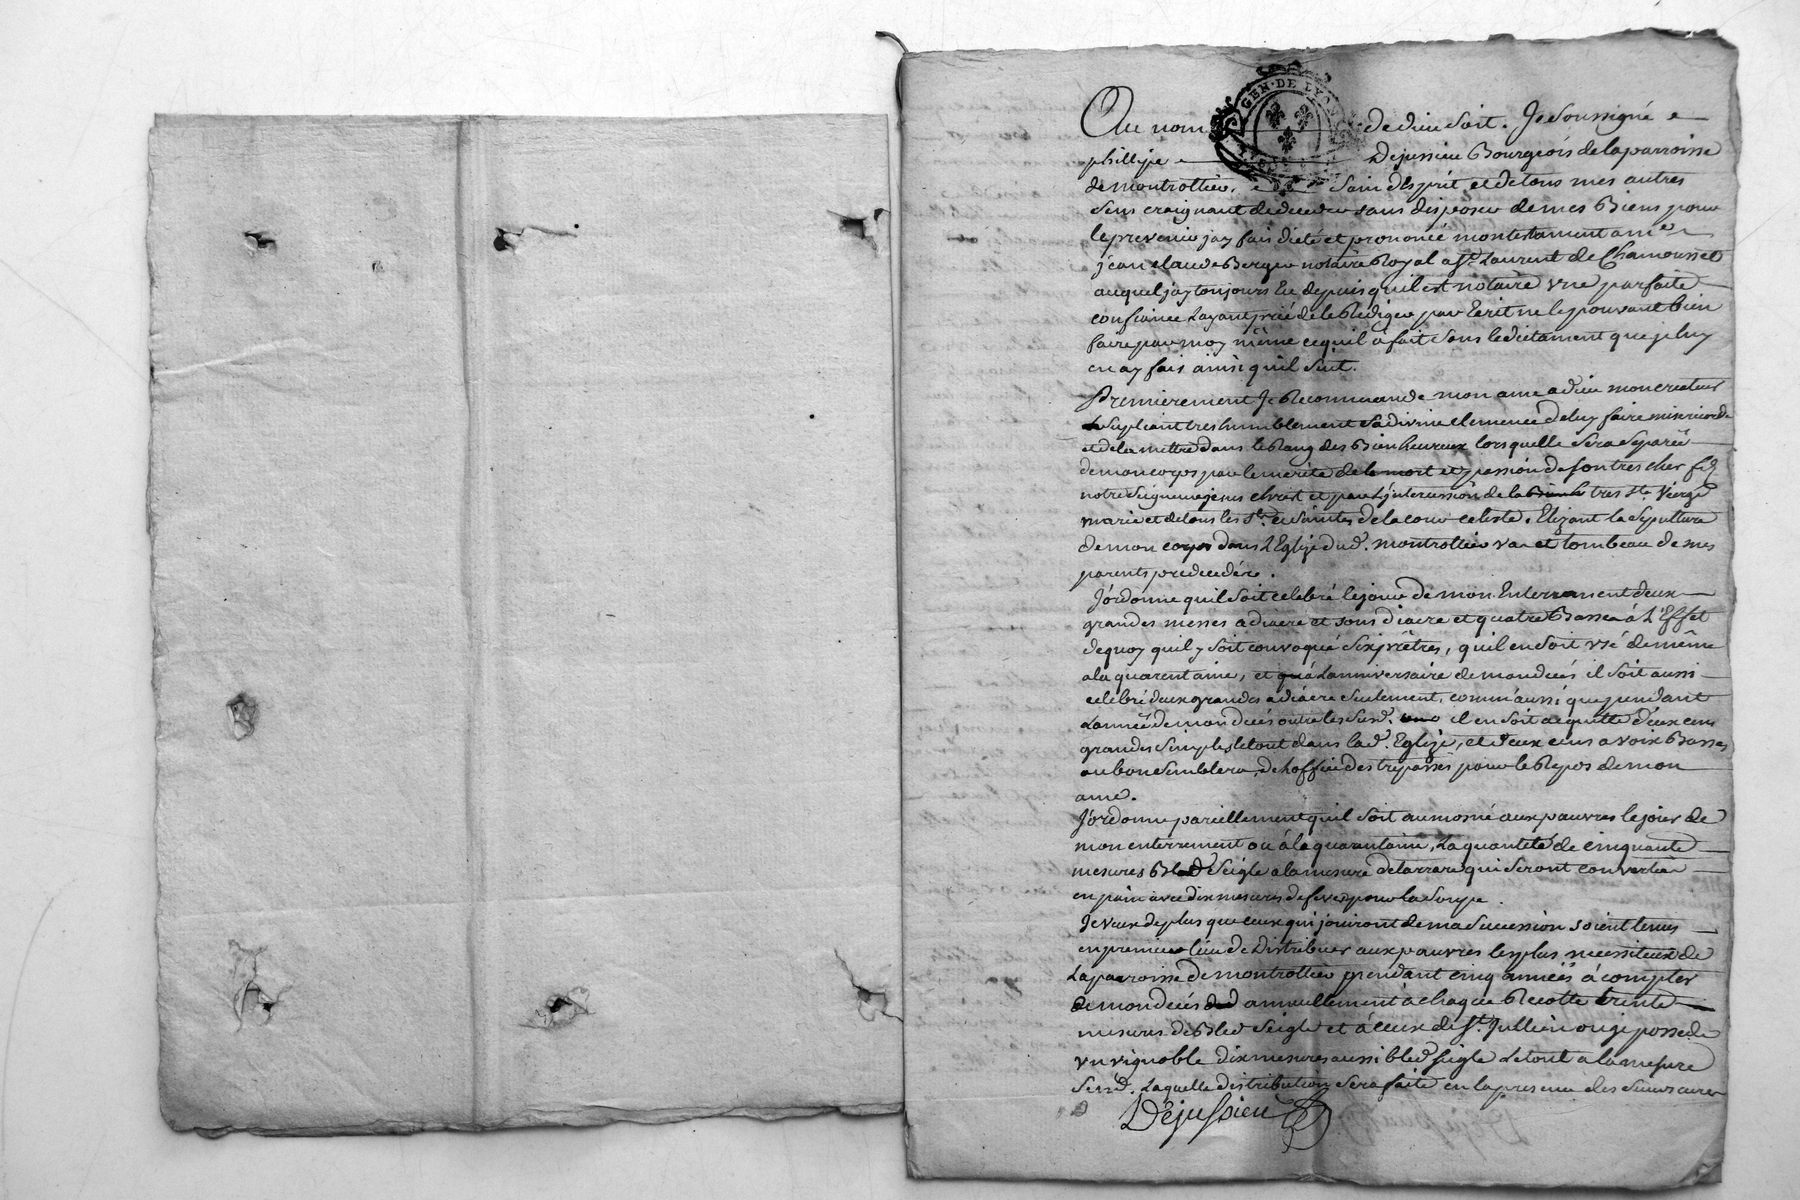 GEN. DE LYON
Au nom de dieu soit. Je Soussigné
phillipe Dejussieu Bourgeois de la parroisse
de montrottier, Sain d'Esprit et de tous mes autres
Sens craignant de deceder sans disposer de mes Biens pour
le prevenir jay fais dicté et prononcé mon testament a me
jean claude Berger notaire Royal a St. Laurent de Chamousset
auquel jay toujours Eu depuis quil est notaire une parfaite
confiance Layant prié de le Rédiger par Ecrit ne le pouvant bien
faire par moy même ce quil à fait Sous le dictament que je luy
en ay fais ainsi quil Suit.
Premierement Je Recommande mon ame a dieu mon createur
Le Supliant tres humblement Sa divine clemence de luy faire misericorde
et de la mettre dans le Rang des Bienheureux lorsquelle Sera Separée
de mon corps par le merite de la mort et passion de son tres cher fils
notre Seigneur jesus christ et par L'intercession de la tres Ste. vierge
marie et de tous les Sts. et Saintes de la cour celeste. Elizant la Sepulture
de mon corps dans L'Eglize dud. montrottier et tombeau de mes
parents predecedés.
J'ordonne quil Soit celebré le jour de mon Enterrement deux
grandes messes a diacre et sous diacre et quatre Basses à L'Effet
de quoy quil y Soit convoqué Six prêtres, quil en Soit usé de même
a la quarentaine, et quà L'anniversaire de mon decés il Soit aussi
celebré deux grandes a diacre Seulement, comm'aussi que pendant
L'année de mon decés outre les Susd. il en Soit acquitté deux cens
grandes Simples le tout dans lad. Eglize, et deux cens a voix Basses
ou bon Semblera, de l'office des trepassés pour le Repos de mon
ame.
J'ordonne pareillement quil Soit aumosné aux pauvres le jour de
mon enterrement ou à la quarantaine, La quantité de cinquante
mesures Bled Seigle a la mesure de larrare qui Seront converties
en pain avec dix mesures de feves pour la Soupe.
Je veux de plus que ceux qui jouiront de ma Succession soient tenus
en premier lieu de Distribuer aux pauvres les plus necessiteux de
La parroisse de montrottier pendant cinq années à compter
de mon decés annuellement à chaque Recolte trente
mesures de Bled Seigle et à ceux de St. Jullien ou je possede
un vignoble dix mesures aussi bled seigle Le tout a la mesure
Susd. Laquelle distribution Sera faite en la presence des Sieurs curés
Dejussieu